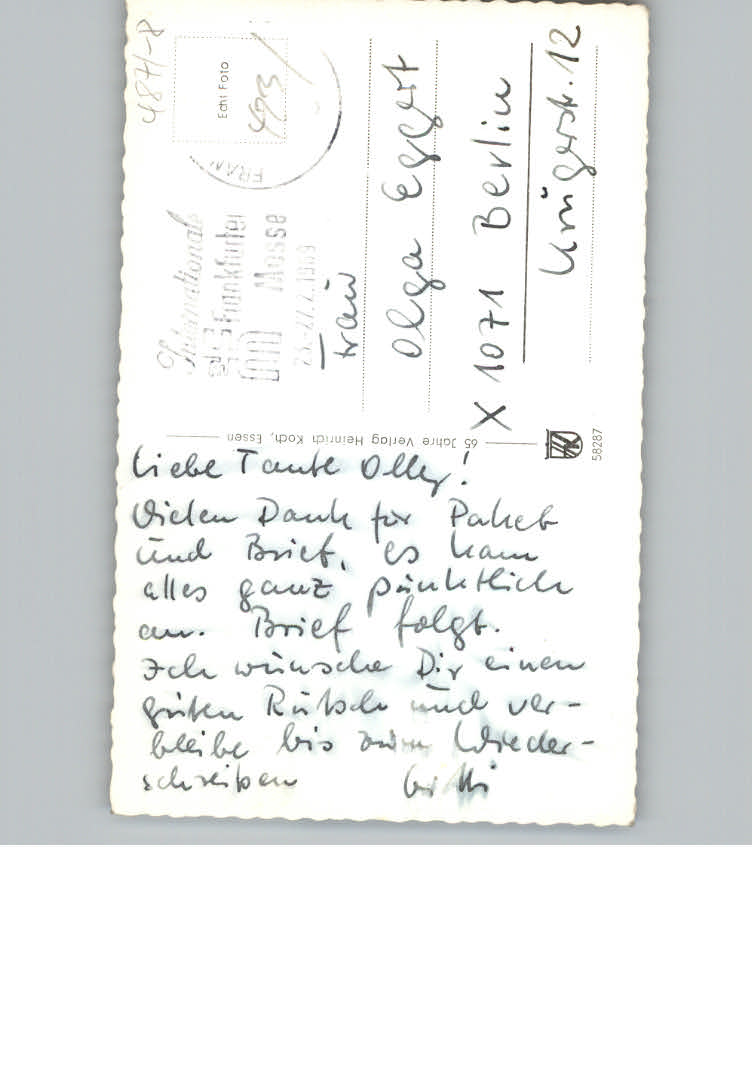 Liebe Tante Olly!
Vielen Dank für Paket
und Brief, es kam
alles ganz pünktlich
an. Brief folgt.
Ich wünsche Dir einen
guten Rutsch und ver-
bleibe bis zum Wieder-
schreiben
65 Jahre Verlag Heinrich Koch, Essen
58287
487/-8
Echt Foto
FRAN
Internationale
Frankfurter
Messe
Frau
Olga Eggert
X 1071 Berlin
Krügerstr. 12